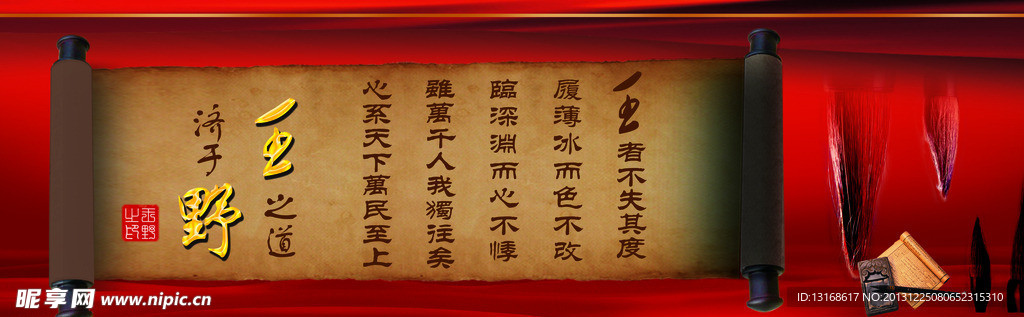 王者不失其度
履薄冰而色不改
臨深淵而心不悸
雖萬千人我獨往矣
心系天下萬民至上
王之道
济于野
昵享网 www.nipic.cn
ID:13168617 NO:20131225080652315310